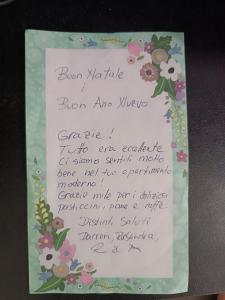 Buon Natale
/
Buon Ano Nuevo
Grazie!
Tutto era eccellente
Ci siamo sentiti molto
bene nel tuo apartamento
moderno!
Grazie mile per i deliziosi
pasticcini, pane e caffe.
Distinti Saluti
Darren,
R a